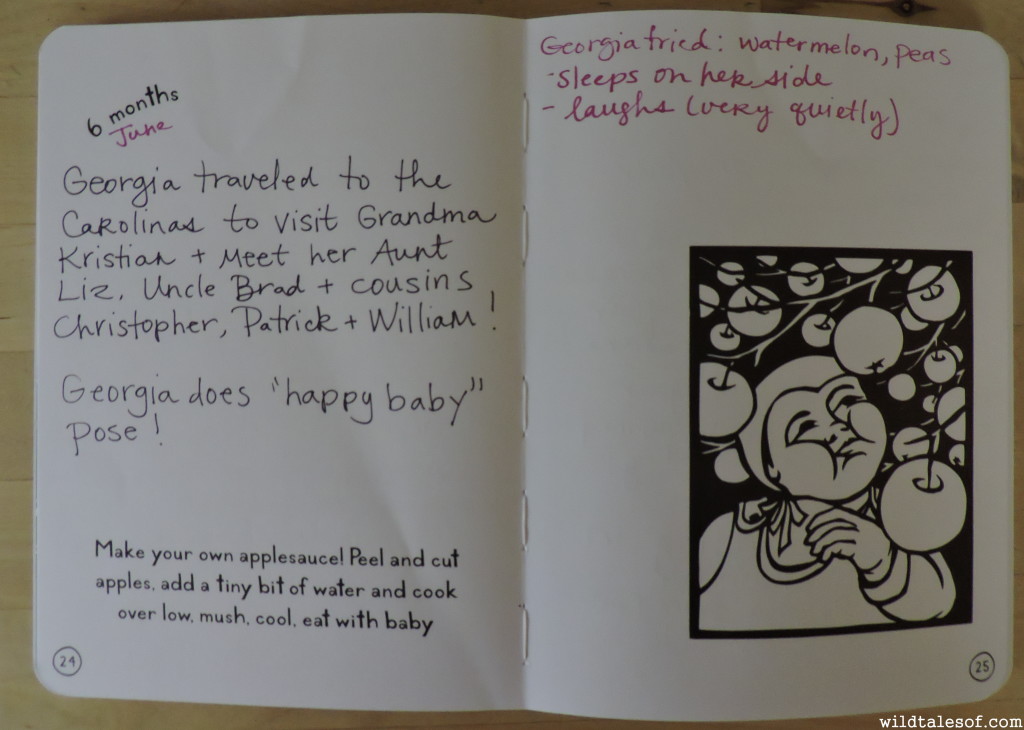 6 months
June
Georgia traveled to the
Carolinas to visit Grandma
Kristian + Meet her Aunt
Liz, Uncle Brad + cousins
Christopher, Patrick + William!
Georgia does "happy baby"
pose!
Make your own applesauce! Peel and cut
apples, add a tiny bit of water and cook
over low, mush, cool, eat with baby
24
Georgia tried: watermelon, peas
-sleeps on her side
- laughs (very quietly)
25
wildtalesof.com